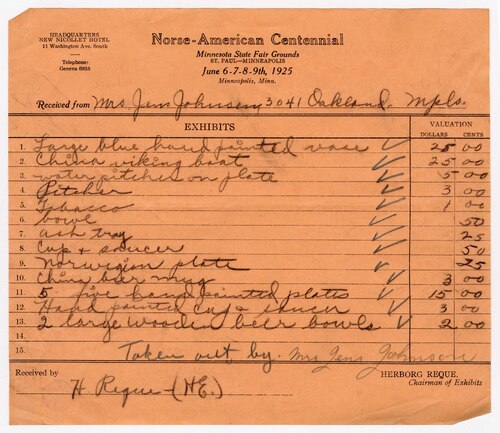 HEADQUARTERS
NEW NICOLLET HOTEL
11 Washington Ave. South
Telephone:
Geneva 6935
Norse-American Centennial
Minnesota State Fair Grounds
ST. PAUL—MINNEAPOLIS
June 6-7-8-9th, 1925
Minneapolis, Minn.
Received from Mrs. Jens Johnson, 3041 Oakland. Mpls.
EXHIBITS VALUATION
DOLLARS CENTS
1. Large blue hand painted vase ✓ 25 00
2. China viking boat ✓ 25 00
3. water pitcher on plate ✓ 5 00
4. Pitcher ✓ 3 00
5. Tobacco ✓ 1 00
6. bowl ✓ 50
7. ash tray ✓ 25
8. Cup + saucer ✓ 50
9. Norwegian plate ✓ 25
10. China beer mug ✓ 3 00
11. 5 five hand painted plates ✓ 15 00
12. Hand painted cup & saucer ✓ 3 00
13. 2 large wooden beer bowls ✓ 2 00
14.
15. Taken out by. Mrs Jens Johnson
Received by H Reque - (H.E.)
HERBORG REQUE,
Chairman of Exhibits